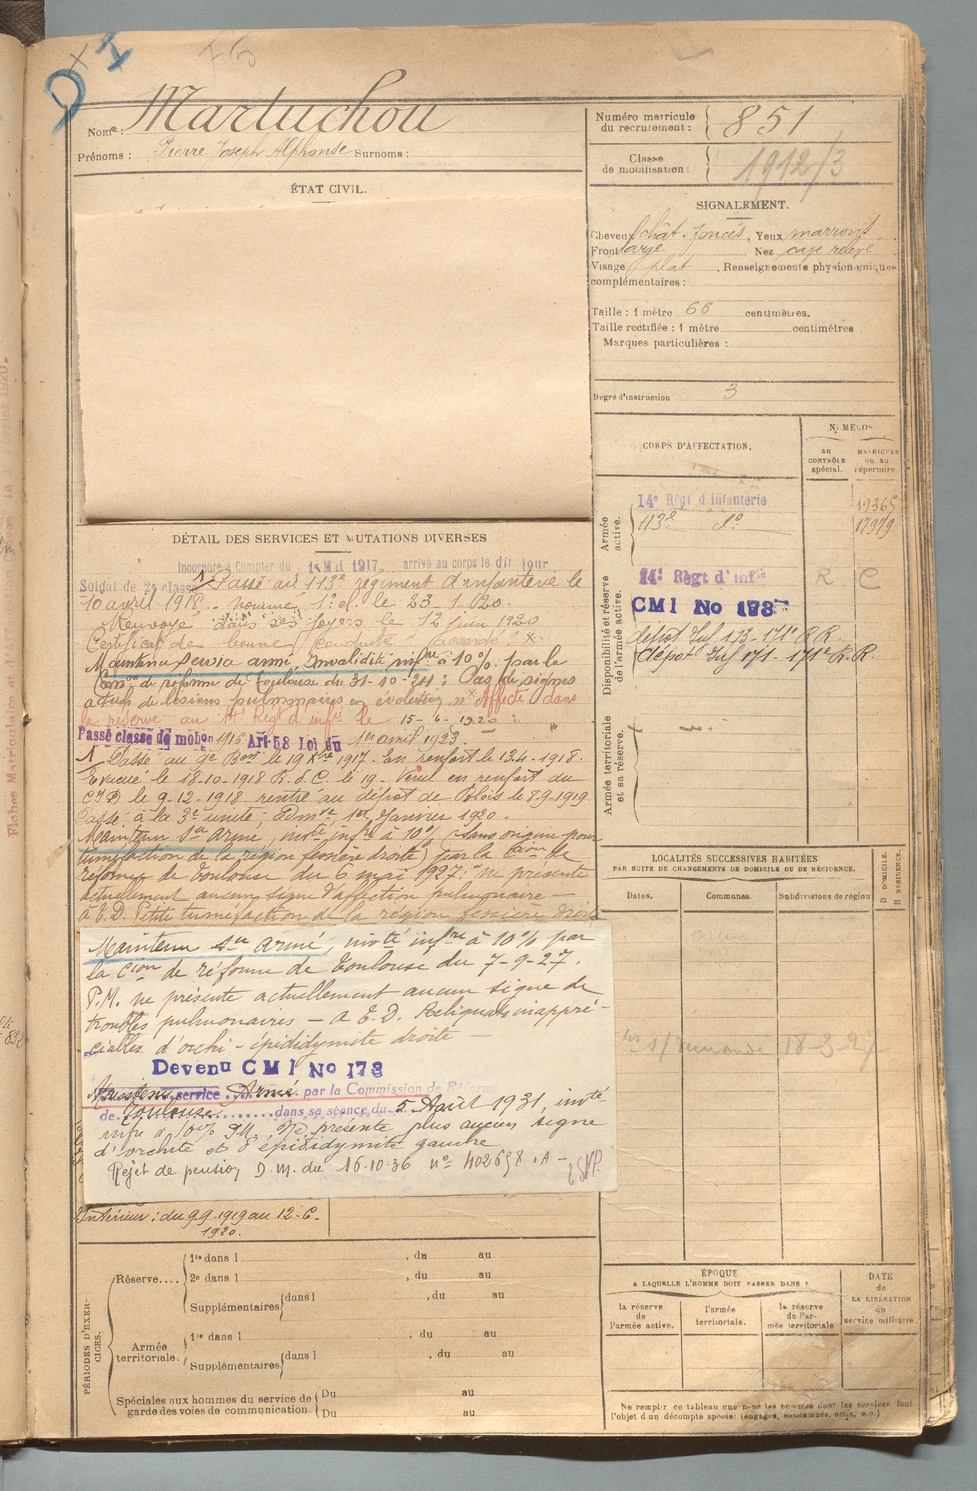 D I
Nom : Martuchou
Prénoms : Pierre Joseph Alphonse Surnoms :
ÉTAT CIVIL.
Numéro matricule du recrutement : 851
Classe de mobilisation : 1912/3
SIGNALEMENT.
Cheveux chât. foncés, Yeux marrons
Front large, Nez cave relevé
Visage plat, Renseignements physionomiques
complémentaires :
Taille : 1 mètre 66 centimètres.
Taille rectifiée : 1 mètre centimètres
Marques particulières :
Degré d'instruction 3
CORPS D'AFFECTATION.
NUMÉROS
au contrôle spécial.
MATRICULE ou au répertoire.
Armée active.
14e Régt d'Infanterie 19365
113e do 17979
Disponibilité et réserve de l'armée active.
14e Régt d'Infie R C
CM1 No 178
dépôt Inf 173 - 171e R.R.
Dépôt Inf 171 - 171e R.R.
Armée territoriale et sa réserve.
DÉTAIL DES SERVICES ET MUTATIONS DIVERSES
Incorporé à Compter du 1917, arrivé au corps le dit jour
Soldat de 2e classe 1) Passé au 113e régiment d'infanterie le
10 avril 1918. - nommé 1e cl. le 23-1-020.
Renvoyé dans ses foyers le 12 Juin 1920
Certificat de bonne conduite "accordé" x
Maintenu service armé, Invalidité infre à 10 % par la
Comon de réforme de Toulouse du 31-10-24 : Pas de signes
actuels de lésions pulmonaires en évolution "x Affecté dans
la réserve au 14e Régt d'infie le 15-6-1920
Passé classe de mobon 1916 Art 58 Loi du 1er avril 1923
1) Passé au 9e Bon le 19 Xbre 1917. En renfort le 13.4-1918.
Evacué le 18-10-1918 R.d.C. le 19. Venu en renfort du
CID le 9-12-1918 rentré au dépôt de Blois le 8-9-1919
Passé à la 3e unité, admve 1er Janvier 1920.
Maintenu sce Armé, invté infre à 10% (sans origine pour
tuméfaction de la région fessière droite) par la Cion de
réforme de Toulouse du 6 mai 1927: "ne présente
actuellement aucun signe d'affection pulmonaire —
à E.D. Petite tuméfaction de la région fessière droite
Maintenu sce armé, invté infre à 10 % par
la Cion de réforme de Toulouse du 7-9-27.
P.M. ne présente actuellement aucun signe de
troubles pulmonaires — A E.D. Reliquats inappré-
ciables d'orchi-épididymite droite —
Devenu CM1 No 178
Maintenu service Armé par la Commission de Réforme
de Toulouse dans sa séance du 5 Août 1931, invté
infre à 10% P.M. Ne présente plus aucun signe
d'orchite et d'épididymite gauche
Rejet de pension D.M. du 16-10-36 no 402698 .A -
Intérieur : du 9.9.1919 au 12-6-
1920.
LOCALITÉS SUCCESSIVES HABITÉES
PAR SUITE DE CHANGEMENTS DE DOMICILE OU DE RÉSIDENCE.
Dates. Communes. Subdivisions de région
D DOMICILE. R RÉSIDENCE.
PÉRIODES D'EXERCICES.
Réserve.... 1re dans l , du au
2e dans l , du au
Supplémentaires dans l , du au
Armée territoriale. 1re dans l , du au
Supplémentaires dans l , du au
Spéciales aux hommes du service de Du au
garde des voies de communication. Du au
ÉPOQUE
A LAQUELLE L'HOMME DOIT PASSER DANS :
la réserve de l'armée active.
l'armée territoriale.
la réserve de l'armée territoriale
DATE de LA LIBÉRATION du service militaire.
Ne remplir ce tableau que pour les hommes dont les services font
l'objet d'un décompte spécial (engagés, condamnés, omis, etc.)